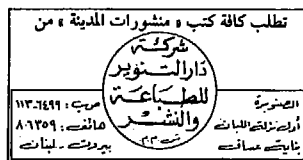 تطلب كافة كتب « منشورات المدينة » من
شركة
دار التنوير
للطباعة
والنشر
ش.م.م
الصنوبرة
أول نزلة اللبان
بناية عساف
ص.ب: ٦٤٩٩-١١٣
هاتف: ٨٠٦٣٥٩
بيروت - لبنان